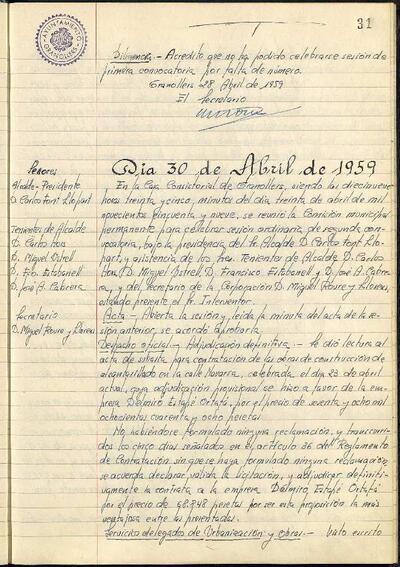 31
AYUNTAMIENTO
GRANOLLERS
Diligencia,- Acredito que no ha podido celebrarse sesión de
primera convocatoria por falta de número.
Granollers 28 Abril de 1959
El Secretario
Señores
Alcalde-Presidente
D. Carlos Font Llopart
Tenientes de Alcalde
D. Carlos
D. Miguel Distrell
D. Fco. Estabanell
D. José A. Cabrera
Secretario
D. Miguel Roure y Lloreas
Dia 30 de Abril de 1959
En la Casa Consistorial de Granollers, siendo las diecinueve
horas treinta y cinco, minutos del día treinta de abril de mil
novecientos cincuenta y nueve, se reunió la Comisión municipal
permanente para celebrar sesión ordinaria, de segunda con-
vocatoria, bajo la presidencia del Sr. Alcalde D. Carlos Font Llo-
part, y asistencia de los Sres. Tenientes de Alcalde D. Carlos
D. Miguel Distrell D. Francisco Estabanell y D. José A. Cabre-
ra, y del Secretario de la Corporación D. Miguel Roure y Lloreas,
estando presente el Sr. Interventor.
Acta - Abierta la sesión y leída la minuta del acta de la se-
sión anterior, se acordó aprobarla.
Despacho oficial - Adjudicación definitiva.- Se dio lectura al
acta de subasta para contratación de las obras de construcción de
alcantarillado en la calle Navarra, celebrada el día 23 de abril
actual, cuya adjudicación provisional se hizo a favor de la em-
presa Dalmiro Estapé Ortafá, por el precio de sesenta y ocho mil
ochocientos cuarenta y ocho pesetas
No habiéndose formulado ninguna reclamación, y transcurri-
dos los cinco días señalados en el artículo 36 del Reglamento
de Contratación sin que se haya formulado ninguna reclamación,
se acuerda declarar valida la licitación, y adjudicar definiti-
vamente la contrata a la empresa Dalmiro Estapé Ortafá
por el precio de 68.848 pesetas por ser esta proposición la mas
ventajosa entre las presentadas.
Servicios delegados de Urbanización y obras.- Visto escrito